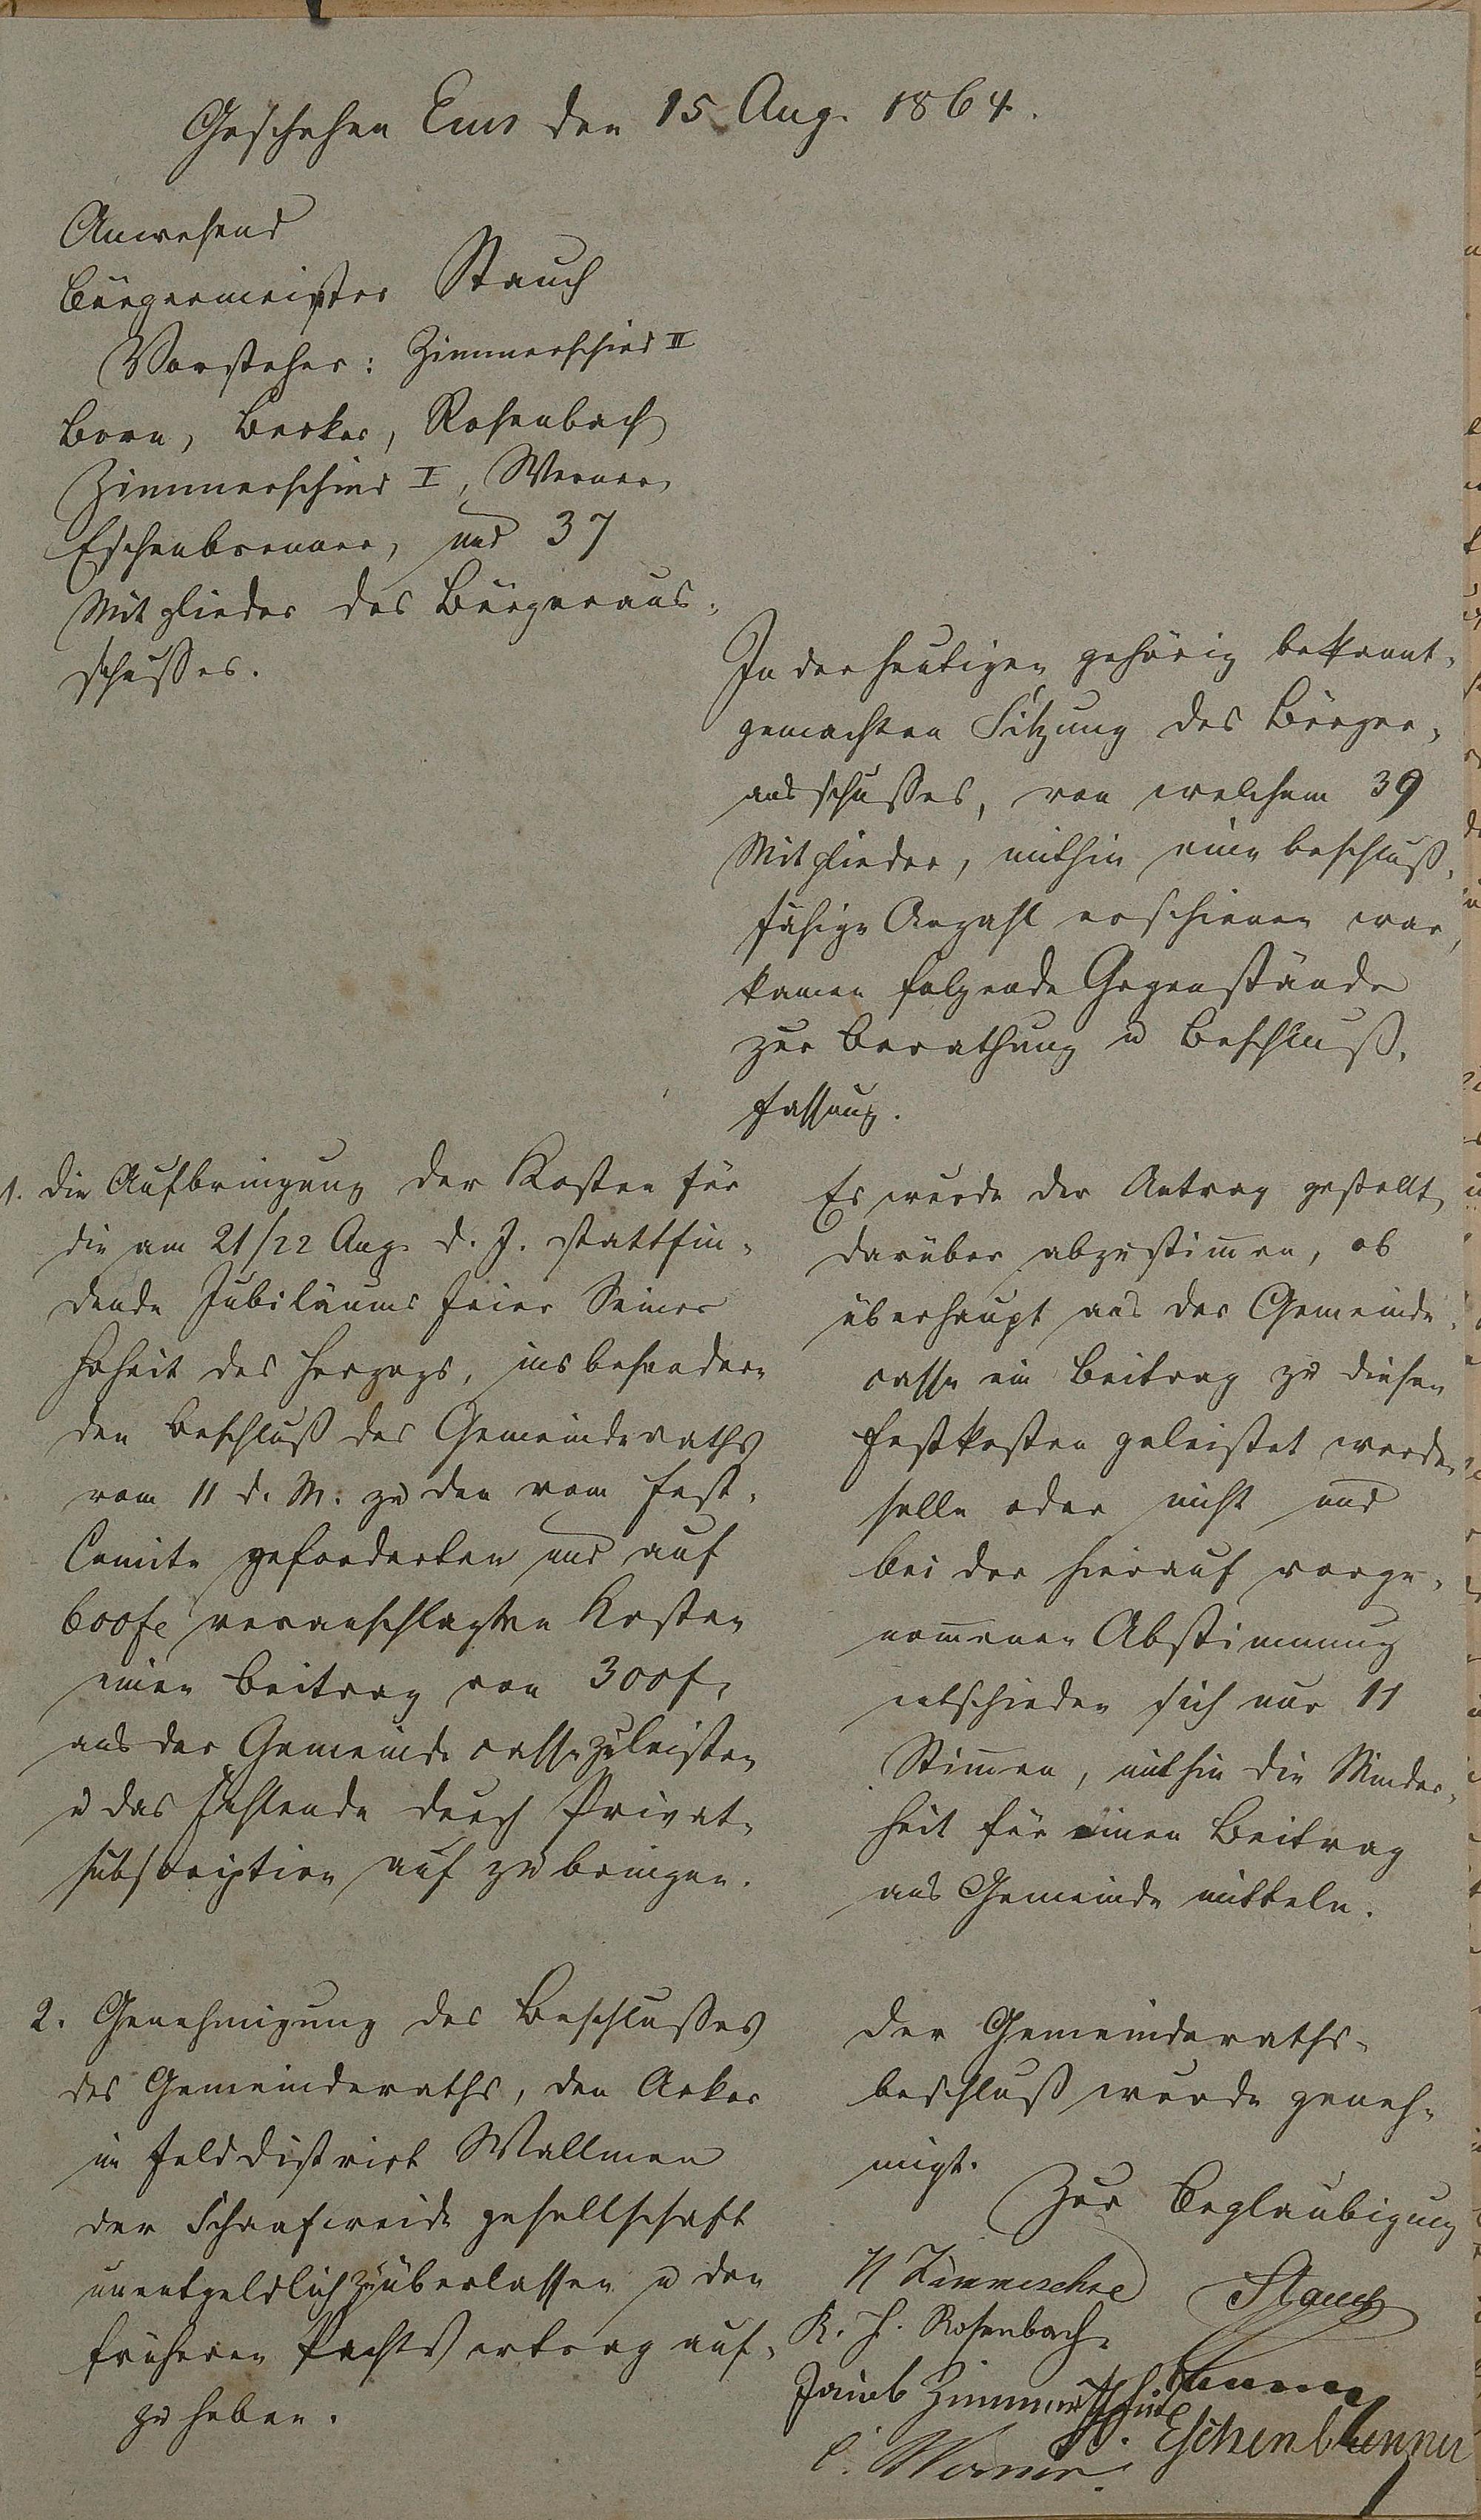 Geschehen Ems den 15 Aug. 1864.
Anwesend
Bürgermeister Stauch
Vorsteher: Zimmerschied III
Born, Becker, Rosenbach
Zimmerschied I, Werner,
Eschenbrenner, und 37
Mitglieder des Bürgeraus-
schusses.
In der heutigen gehörig bekannt-
gemachten Sitzung des Bürger-
ausschusses, von welchem 39
Mitglieder, mithin eine beschluß-
fähige Anzahl erschienen war,
kamen folgende Gegenstände
zur Berathung u Beschluß-
fassung.
1. die Aufbringung der Kosten für
die am 21/22 Aug. d. J. stattfin-
dende Jubiläums feier Seiner
Hoheit des Herzogs, insbesondere
den Beschluß des Gemeinderaths
vom 11 d. M. zu den vom Fest-
Comite geforderten und auf
600 f. veranschlagten Kosten
einen Beitrag von 300 f.
aus der Gemeinde casse zu leisten
u das Fehlende durch Privat-
subscription auf zu bringen.
Es wurde der Antrag gestellt,
darüber abzustimen, ob
überhaupt aus der Gemeinde-
casse ein Beitrag zu diesen
Festkosten geleistet werden
solle oder nicht und
bei der hierauf vorge-
nomenen Abstimmung
entschieden sich nur 11
Stimen, mithin die Minder-
heit für einen Beitrag
aus Gemeinde mitteln.
2. Genehmigung des Beschlusses
des Gemeinderaths, den Acker
im Felddistrict Wallmen
der Schaafweide gesellschaft
unentgeldlich zu überlassen u den
früheren Pachtvertrag auf-
zu heben.
Der Gemeinderaths-
beschluß wurde geneh-
migt.
Zur Beglaubigung
Stauch
K. H. Rosenbach
Jacob Zimmerschied
Eschenbrenner
C. Werner.